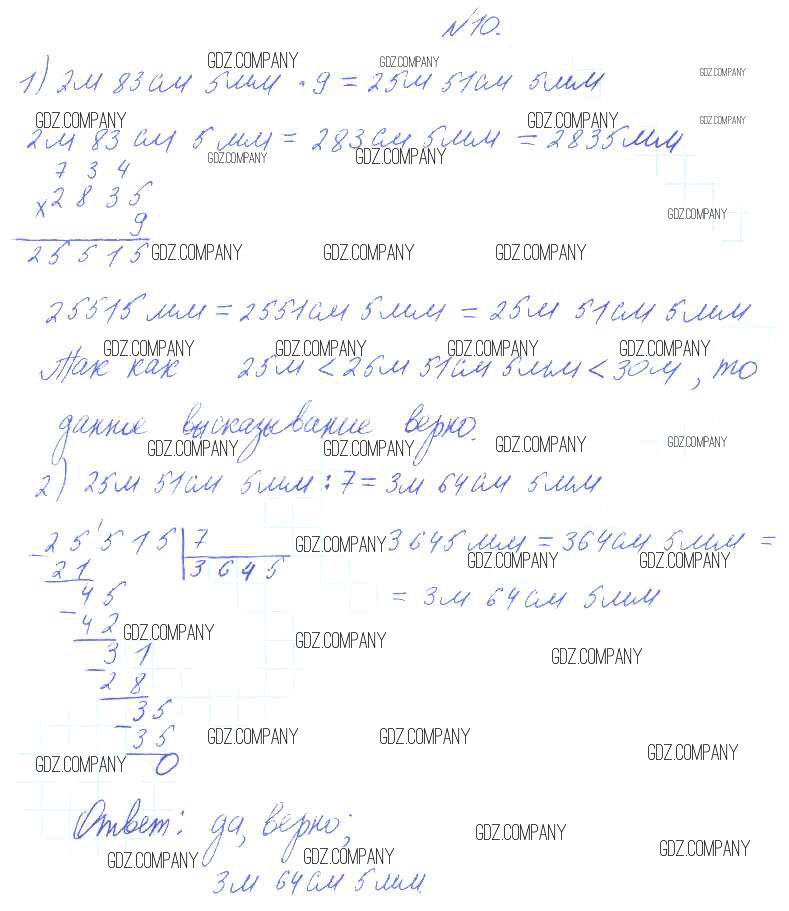 №10.
GDZ.COMPANY GDZ.COMPANY
1) 2м 83см 5мм · 9 = 25м 51см 5мм GDZ.COMPANY
GDZ.COMPANY GDZ.COMPANY GDZ.COMPANY
2м 83см 5мм = 283см 5мм = 2835мм
GDZ.COMPANY GDZ.COMPANY
7 3 4
× 2 8 3 5
9 GDZ.COMPANY
2 5 5 1 5 GDZ.COMPANY GDZ.COMPANY GDZ.COMPANY
25515мм = 2551см 5мм = 25м 51см 5мм
GDZ.COMPANY GDZ.COMPANY GDZ.COMPANY GDZ.COMPANY
Так как 25м < 26м 51см 5мм < 30м, то
данное высказывание верно.
GDZ.COMPANY GDZ.COMPANY GDZ.COMPANY GDZ.COMPANY
2) 25м 51см 5мм : 7 = 3м 64см 5мм
- 2 5 5 1 5 | 7 GDZ.COMPANY 3645мм = 364см 5мм =
2 1 3 6 4 5 GDZ.COMPANY GDZ.COMPANY
4 5 = 3м 64см 5мм
- 4 2 GDZ.COMPANY GDZ.COMPANY
3 1 GDZ.COMPANY
- 2 8
3 5
- 3 5 GDZ.COMPANY GDZ.COMPANY GDZ.COMPANY
GDZ.COMPANY 0
Ответ: да, верно; GDZ.COMPANY
GDZ.COMPANY GDZ.COMPANY GDZ.COMPANY
3м 64см 5мм.